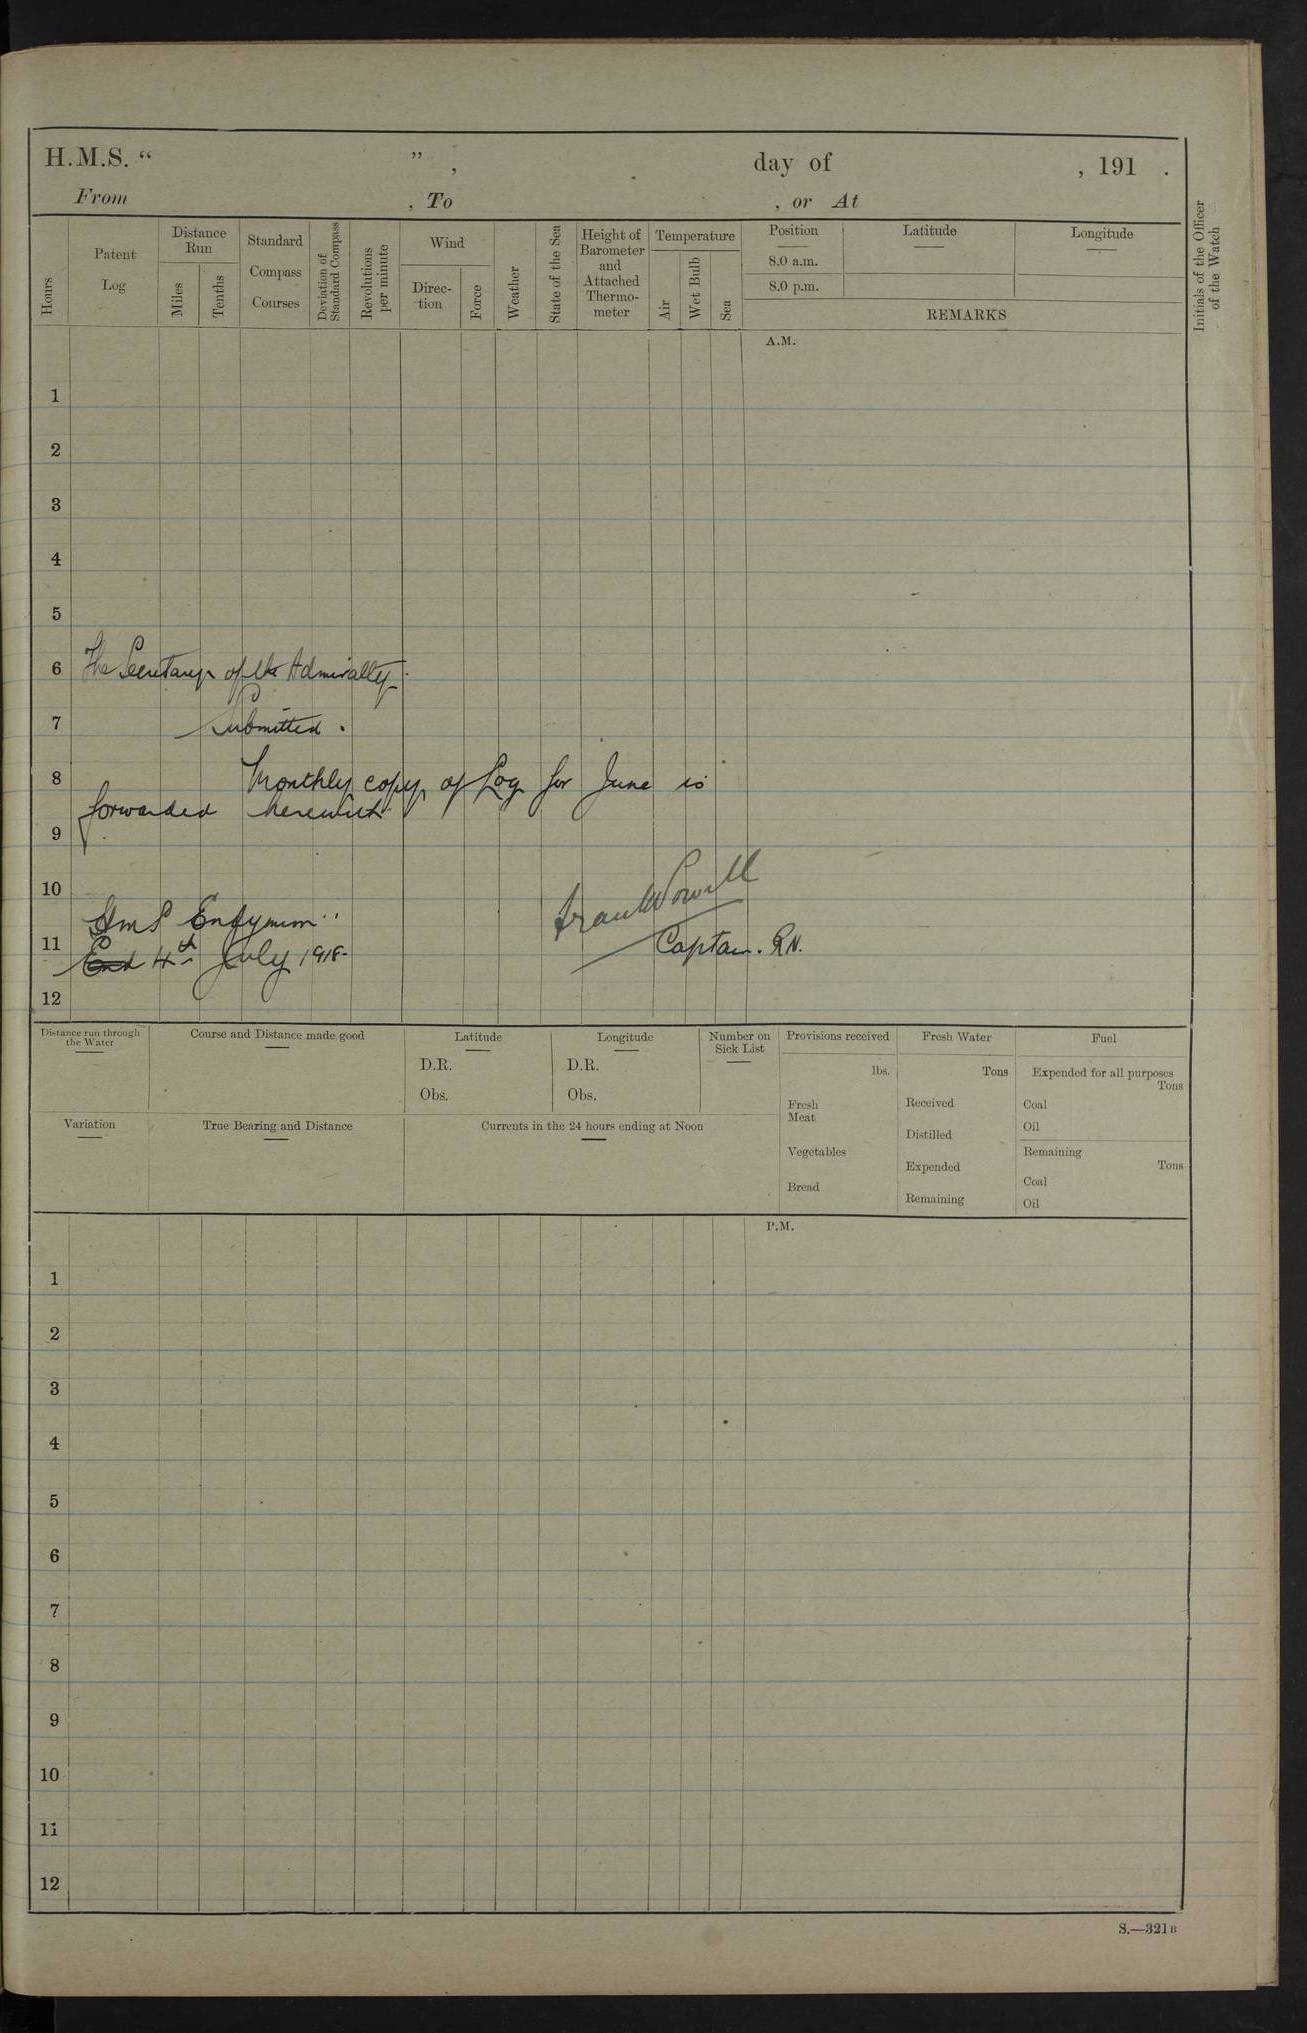 H.M.S. “ ” , day of , 191 .
From , To , or At
Hours
Patent Log
Distance Run
Miles
Tenths
Standard Compass Courses
Deviation of Standard Compass
Revolutions per minute
Wind
Direc-
tion
Force
Weather
State of the Sea
Height of Barometer and Attached Thermo-
meter
Temperature
Air
Wet Bulb
Sea
Position
8.0 a.m.
8.0 p.m.
Latitude
Longitude
REMARKS
Initials of the Officer of the Watch
A.M.
1
2
3
4
5
6
The Secretary of the Admiralty.
7
Submitted.
8
Monthly copy of Log for June is
forwarded herewith.
9
10
Frank Powell
H m S Endymion
11
Captain. R.N.
4th July 1918.
12
Distance run through the Water
Course and Distance made good
Latitude
D.R.
Obs.
Longitude
D.R.
Obs.
Number on Sick List
Provisions received
lbs.
Fresh Meat
Vegetables
Bread
Fresh Water
Tons
Received
Distilled
Expended
Remaining
Fuel
Expended for all purposes
Tons
Coal
Oil
Remaining
Tons
Coal
Oil
Variation
True Bearing and Distance
Currents in the 24 hours ending at Noon
P.M.
1
2
3
4
5
6
7
8
9
10
11
12
S.—321B